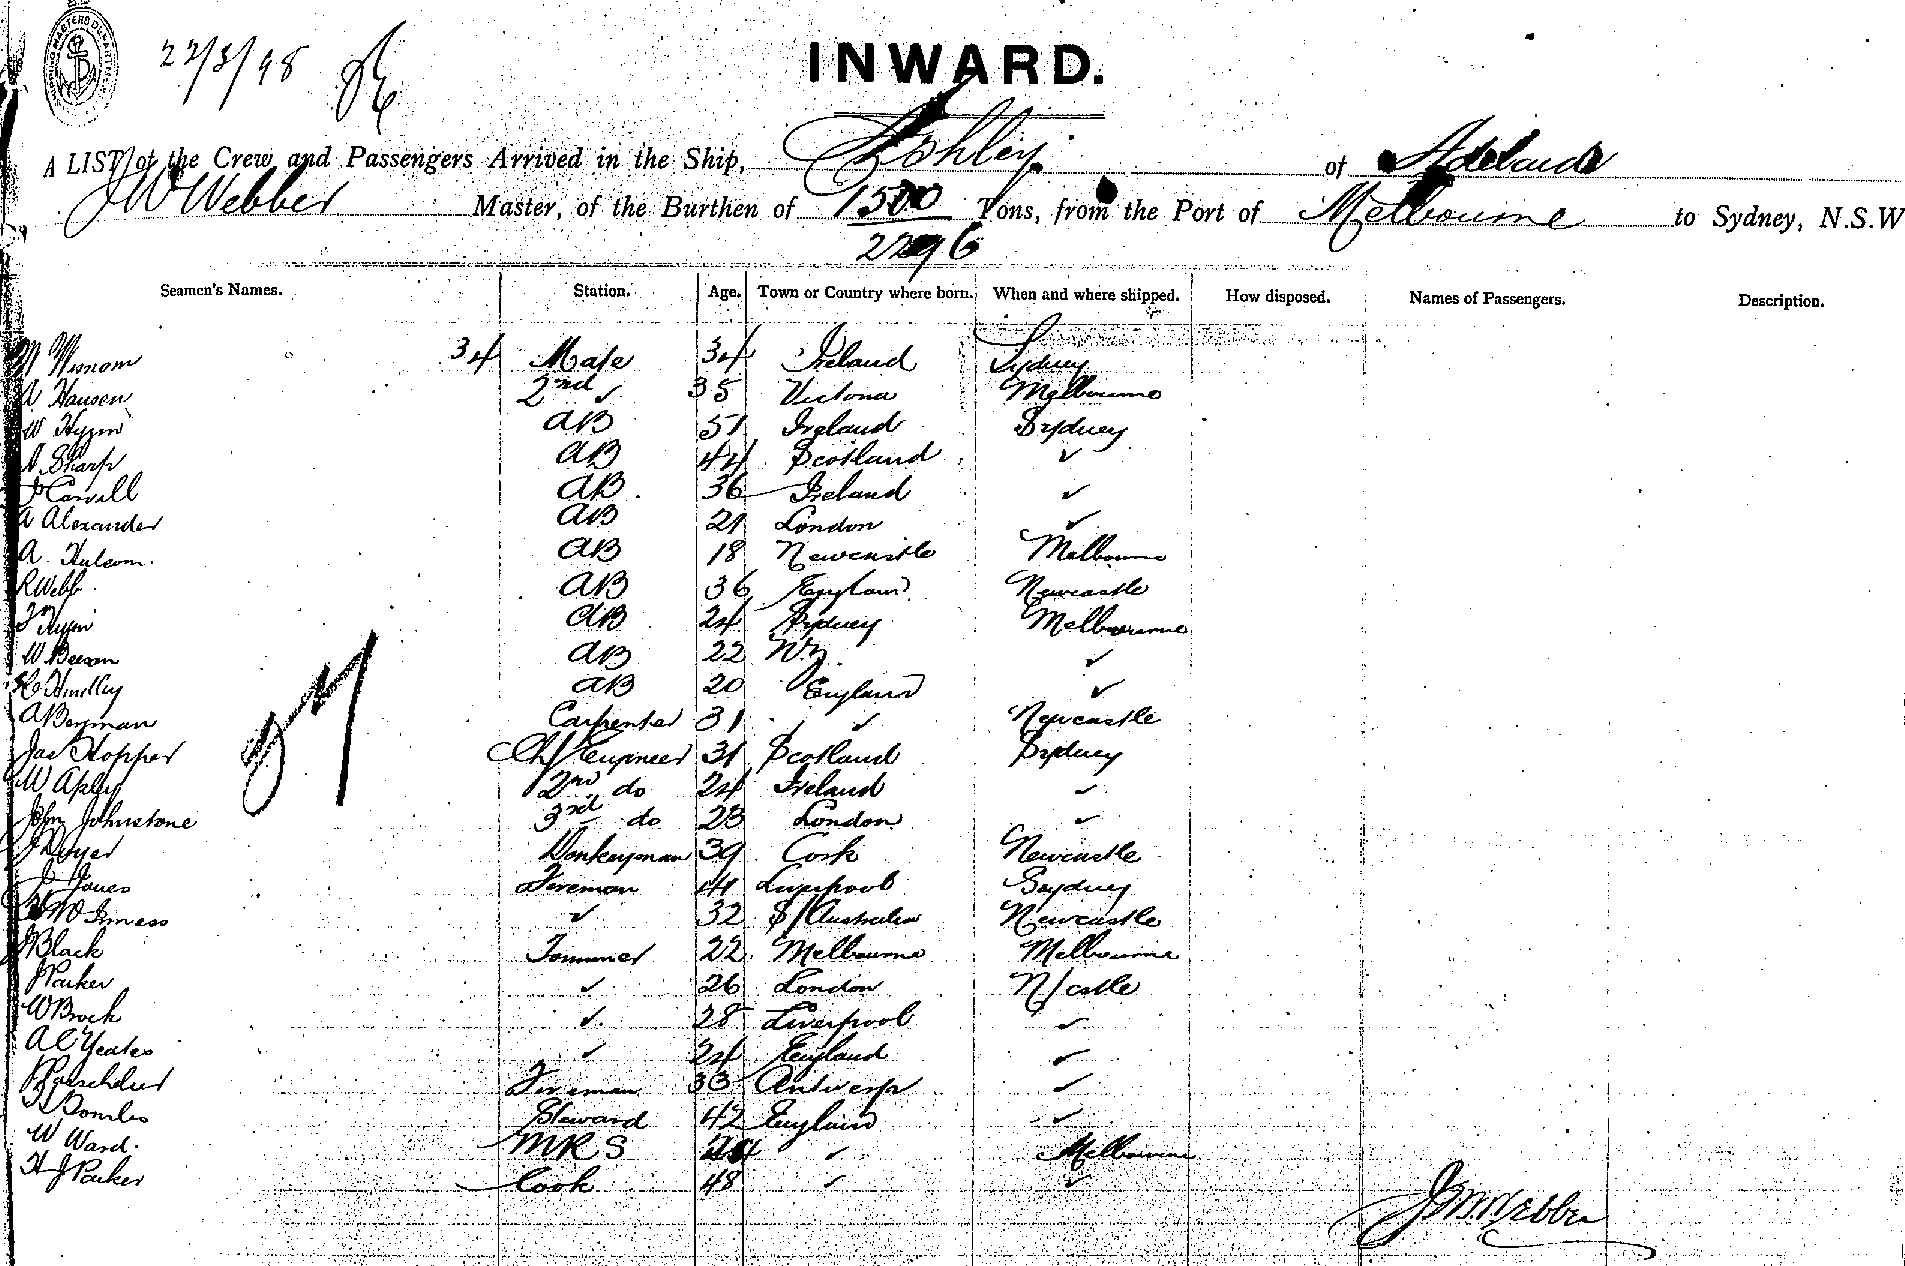 22/3/98
INWARD.
A LIST of the Crew and Passengers Arrived in the Ship, Ashley of Adelaide
J W Webber Master, of the Burthen of 1500 Tons, from the Port of Melbourne to Sydney, N.S.W
2296
Seamen's Names. Station. Age. Town or Country where born. When and where shipped. How disposed. Names of Passengers. Description.
34 Mate 34 Ireland Sydney
A. Hansen 2nd ✓ 35 Victoria Melbourne
W AB 51 Ireland Sydney
A Sharp AB 44 Scotland ✓
J AB 36 Ireland ✓
A Alexander AB 21 London ✓
A. AB 18 Newcastle Melbourne
R Webb AB 36 England Newcastle
AB 24 Sydney Melbourne
W Beeson AB 22 ✓
Hindley AB 20 England ✓
A Berman Carpenter 31 ✓ Newcastle
Jas Hopper Chf Engineer 31 Scotland Sydney
W 2nd do 24 Ireland ✓
John Johnstone 3rd do 23 London ✓
J Dwyer Donkeyman 39 Cork Newcastle
J Jones Fireman 41 Liverpool Sydney
✓ 32 S/Australia Newcastle
J Black Trimmer 22 Melbourne Melbourne
J Parker ✓ 26 London N/castle
W Brock ✓ 28 Liverpool ✓
A C Yeates ✓ 24 England ✓
Fireman 33 Antwerp ✓
Steward 42 England ✓
W Ward. M R S ✓ Melbourne
H J Parker Cook 48 ✓ ✓
J W Webber